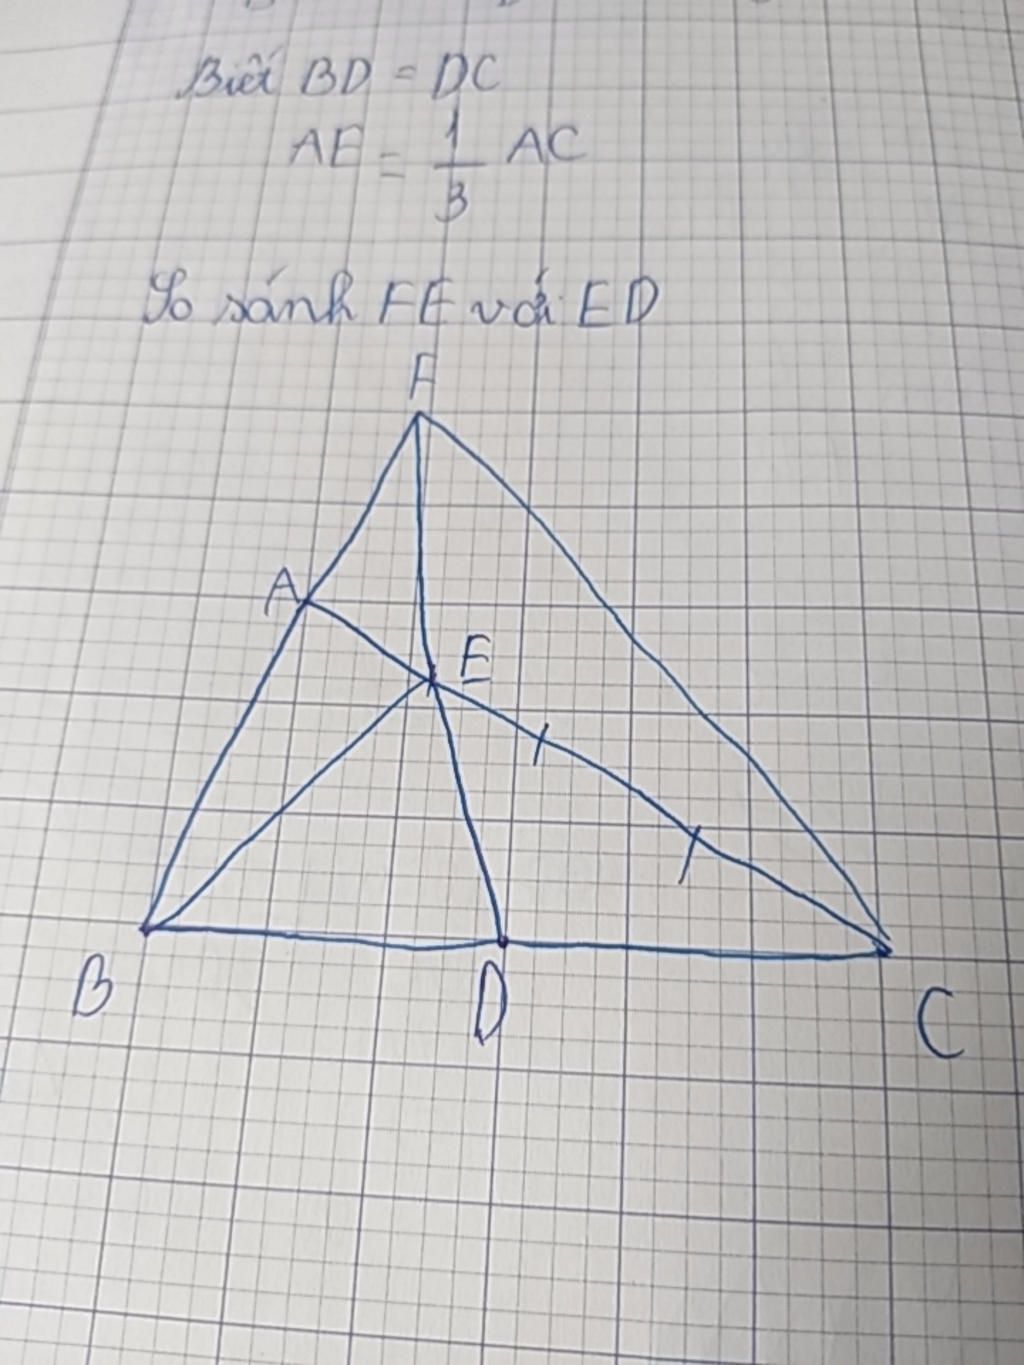 Biết BD = DC
AE = 1/3 AC
So sánh FE với ED
F
A
E
B
D
C